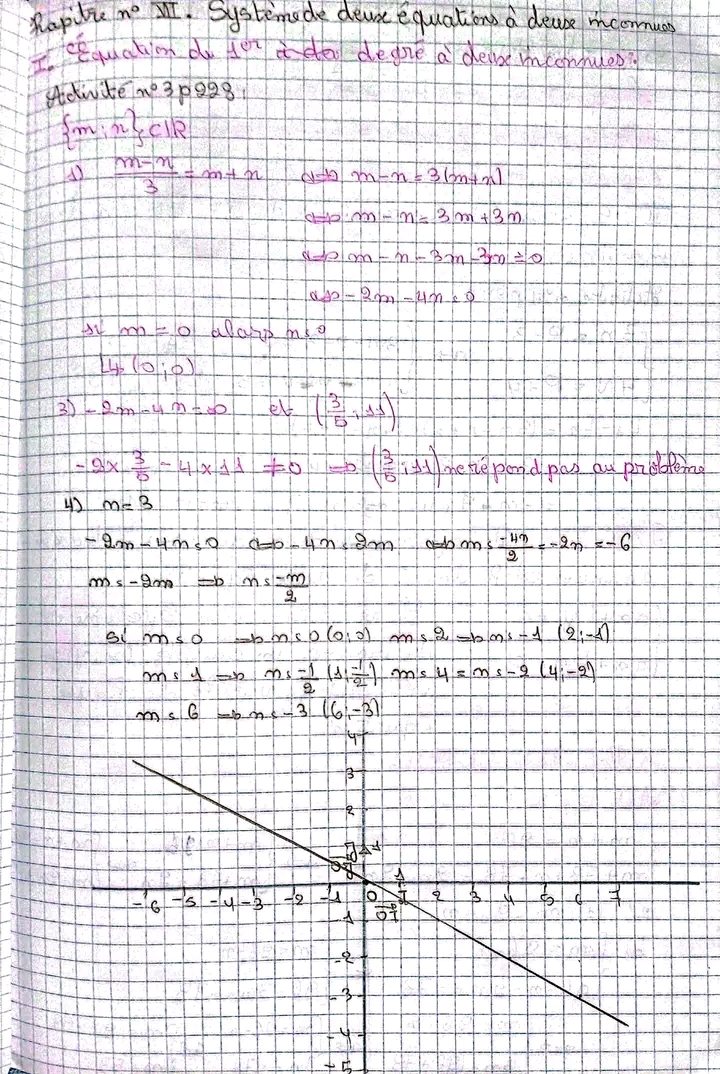 Chapitre n° VII. Système de deux équations à deux inconnues
I. Équation du 1er degré à deux inconnues:
Activité n°3 p 228:
{m; n} ⊂ IR
1) (m-n)/3 = m+n ⇔ m-n = 3(m+n)
⇔ m-n = 3m+3n
⇔ m-n-3m-3n = 0
⇔ -2m-4n = 0
si m = 0 alors n = 0
↳ (0;0)
3) -2m-4n = 0 et (3/5; 11)
-2 × 3/5 - 4 × 11 ≠ 0 ⇒ (3/5; 11) ne répond pas au problème
4) n = 3
-2m-4n = 0 ⇔ -4n = 2m ⇔ m = -4n/2 = -2n = -6
m = -2n ⇒ n = -m/2
si m = 0 ⇒ n = 0 (0;0) m = 2 ⇒ n = -1 (2;-1)
m = 1 ⇒ n = -1/2 (1; -1/2) m = 4 = n = -2 (4;-2)
m = 6 ⇒ n = -3 (6;-3)
4
3
2
J 1
OJ
1
-6 -5 -4 -3 -2 -1 0 I 2 3 4 5 6 7
-1 OI
-2
-3
-4
-5